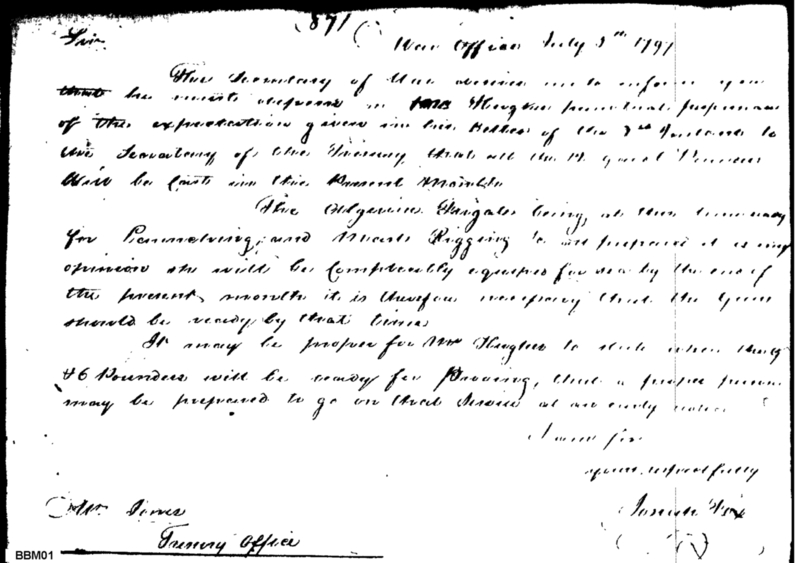 (871
Sir War Office July 3th 1797
The Secretary of War desires me to inform you
that he must depend on Mr Hughes punctual
of the expectation given in his Letter of the 3rd Instant to
the Secretary of the Treasury that all the 12 Pounders
Will be Cast in the Present Month
The Algerine Frigate being, at this time ready
for Launching, and Masts Rigging &c all prepared it is my
opinion she will be Compleatly equiped for sea by the end of
the present month it is therefore necessary that the Guns
should be ready by that time
It may be proper for Mr Hughes to state when the
6 Pounders will be ready for Prooving, that a proper person
may be prepared to go on that Service at an early notice
I am Sir
your respectfully
Josiah Fox
Mr Jones
Tresury Office
BBM01